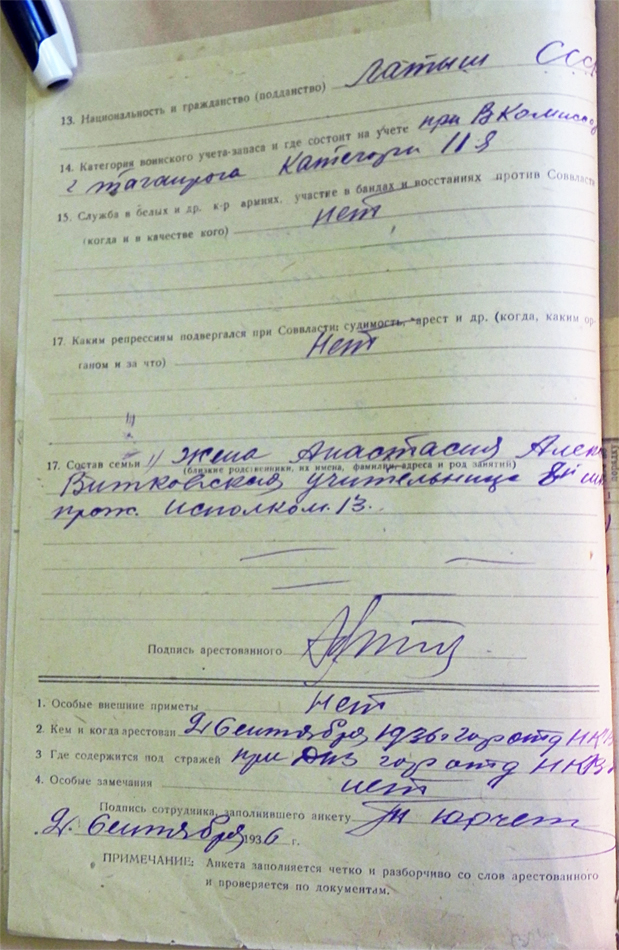 13. Национальность и гражданство (подданство) Латыш ССС
14. Категория воинского учета-запаса и где состоит на учете при ВКомисса
г Таганрога Категории II я
15. Служба в белых и др. к-р армиях, участие в бандах и восстаниях против Соввласти
(когда и в качестве кого) нет
17. Каким репрессиям подвергался при Соввласти: судимость, арест и др. (когда, каким ор-
ганом и за что) Нет
17. Состав семьи 1) Жена Анастасия Алек
(близкие родственники, их имена, фамилии, адреса и род занятий)
Витковская учительница 8й шк
прож. Исполком. 13.
Подпись арестованного
1. Особые внешние приметы нет
2. Кем и когда арестован 2/ Сентября 1936 г гор отд НКВ
3 Где содержится под стражей при гор отд НКВ
4. Особые замечания нет
Подпись сотрудника, заполнившего анкету
2/. Сентября 1936 г.
ПРИМЕЧАНИЕ: Анкета заполняется четко и разборчиво со слов арестованного
и проверяется по документам.